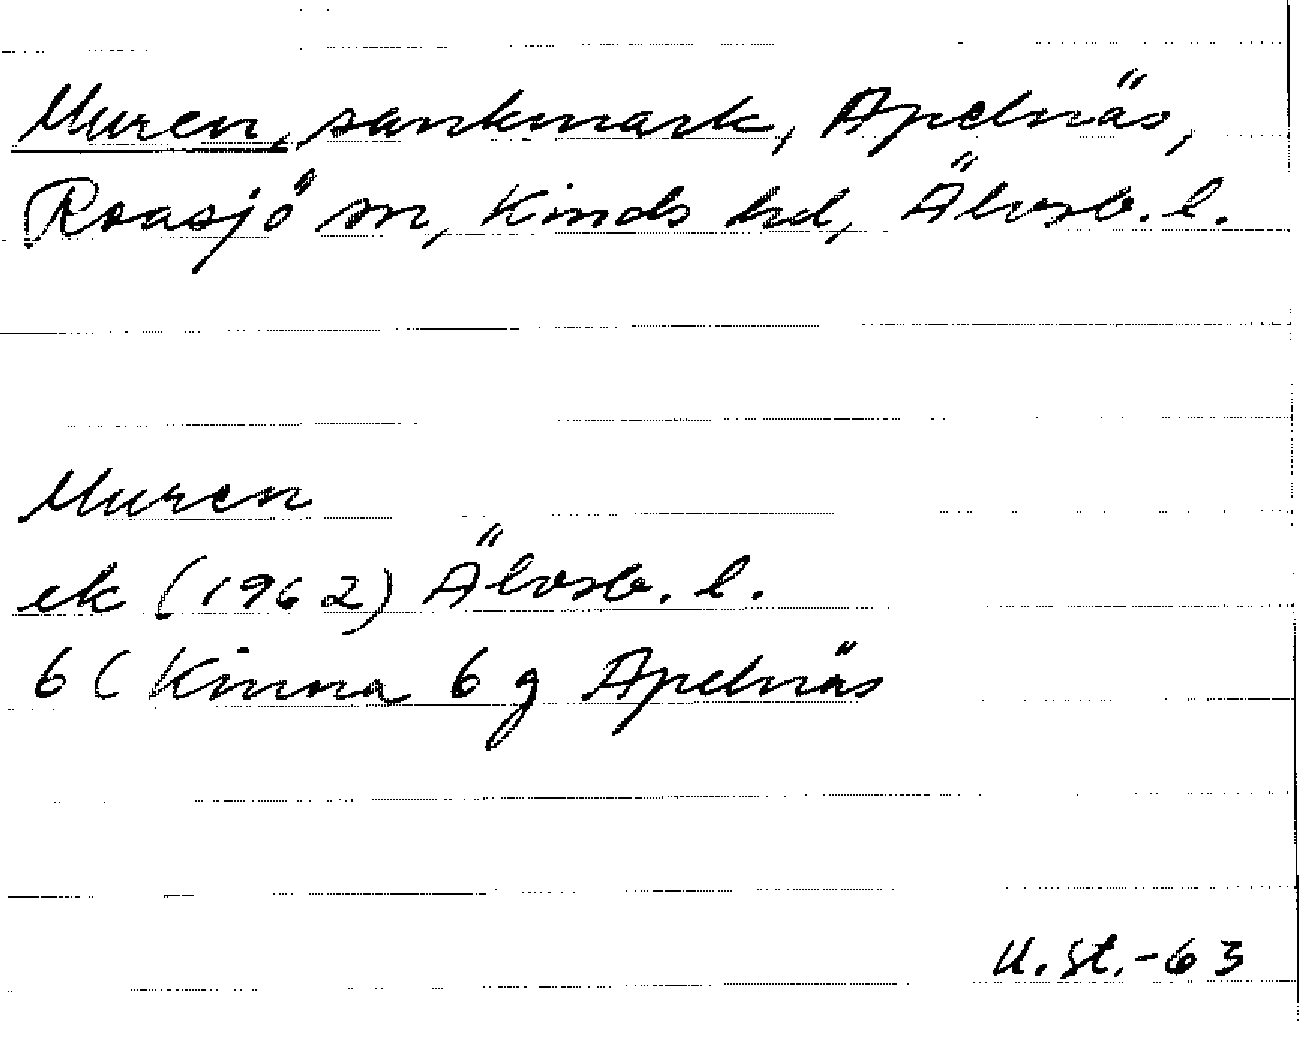 Muren, sankmark, Apelnäs,
Roasjö sn, Kinds hd, Älvsb. l.
Muren
ek (1962) Älvsb. l.
6 ( Kinna 6 g Apelnäs
U. St. -63